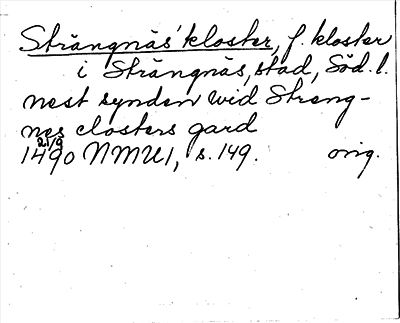 Strängnäs' kloster, f. kloster
i Strängnäs, stad, Söd. l.
nest synden wid Streng-
nes closters gard
21/9
1490 NMU1, s. 149. orig.